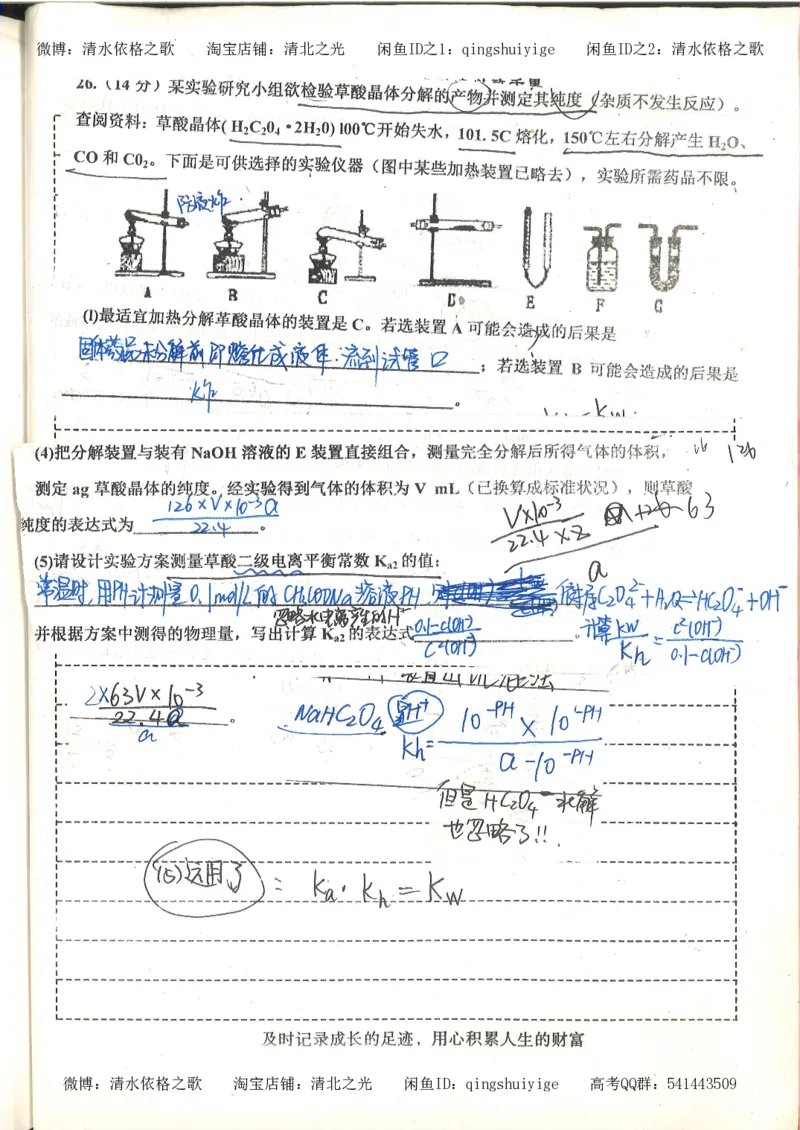 微博：清水依格之歌 淘宝店铺：清北之光 闲鱼ID之1：qingshuiyige 闲鱼ID之2：清水依格之歌
26.（14 分）某实验研究小组欲检验草酸晶体分解的产物并测定其纯度（杂质不发生反应）。
查阅资料：草酸晶体( H₂C₂O₄·2H₂O) 100℃开始失水，101. 5C 熔化，150℃左右分解产生 H₂O、
CO 和 CO₂。下面是可供选择的实验仪器（图中某些加热装置已略去），实验所需药品不限。
防液炸
A B C D E F G
(1)最适宜加热分解草酸晶体的装置是 C。若选装置 A 可能会造成的后果是
固体药品未分解前即熔化成液体，流到试管口 ；若选装置 B 可能会造成的后果是
炸 。
(4)把分解装置与装有 NaOH 溶液的 E 装置直接组合，测量完全分解后所得气体的体积， 126
测定 ag 草酸晶体的纯度。经实验得到气体的体积为 V mL（已换算成标准状况），则草酸
纯度的表达式为 126×V×10⁻³a / 22.4 。
V×10⁻³ / 22.4×2
a
(5)请设计实验方案测量草酸二级电离平衡常数 Kₐ₂ 的值：
常温时，用PH计测量0.1mol/L的CH₃COONa溶液PH， C₂O₄²⁻+H₂O⇌HC₂O₄⁻+OH⁻
忽略水电离产生的H⁺
并根据方案中测得的物理量，写出计算 Kₐ₂ 的表达式 0.1-c(OH⁻) / c²(OH⁻) 。计算 Kw / Kh = c²(OH⁻) / 0.1-c(OH⁻)
2×63V×10⁻³ / 22.4a 。
NaHC₂O₄ 量H⁺
Kh= 10⁻ᴾᴴ × 10⁻ᴾᴴ / a-10⁻ᴾᴴ
但是 HC₂O₄⁻ 水解
也忽略了!!.
(5)运用了 : Ka·Kh=Kw
及时记录成长的足迹，用心积累人生的财富
微博：清水依格之歌 淘宝店铺：清北之光 闲鱼ID：qingshuiyige 高考QQ群：541443509